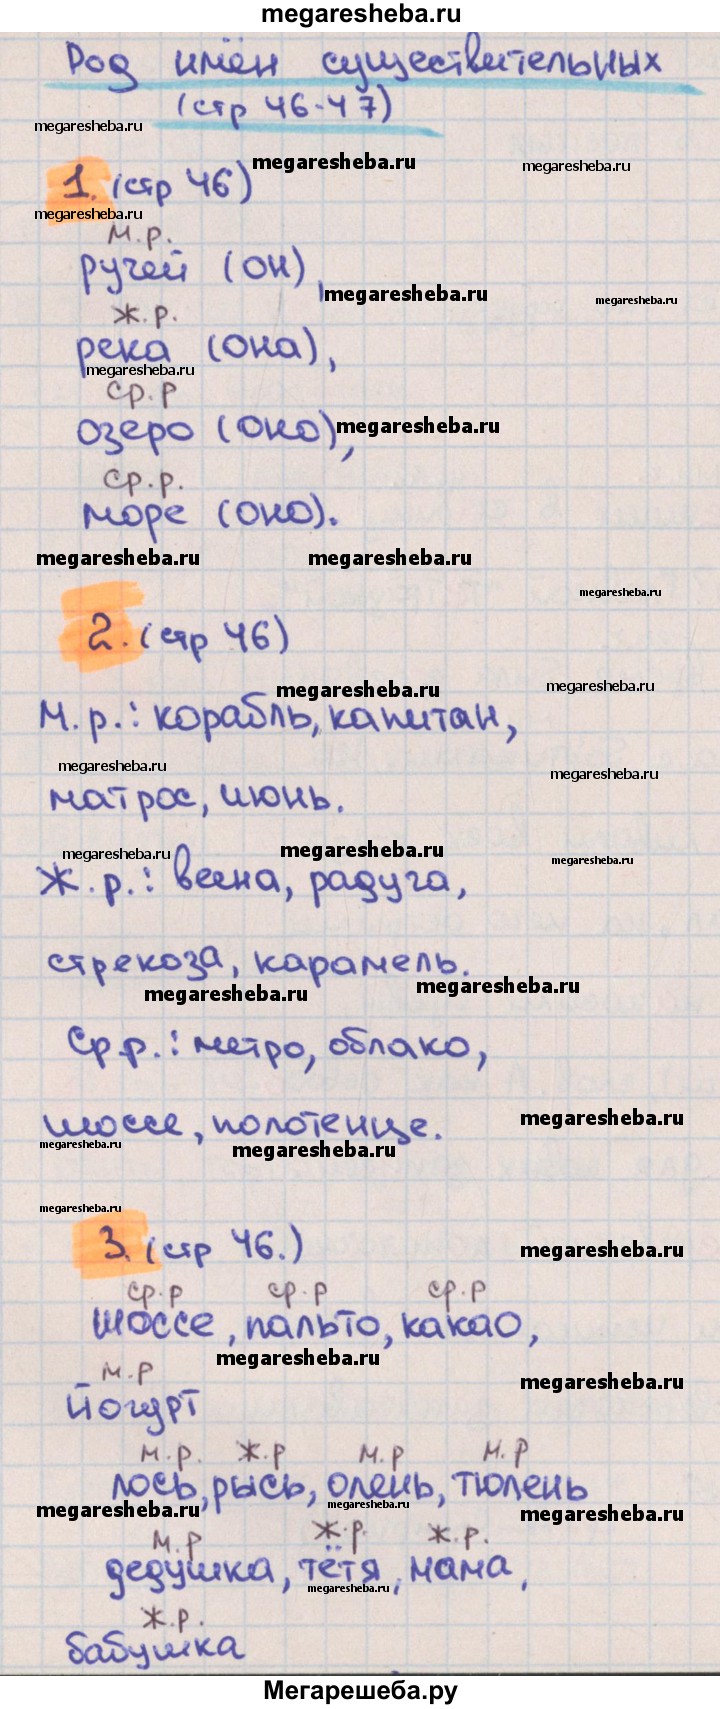 megaresheba.ru
Род имён существительных
(стр 46-47)
megaresheba.ru
megaresheba.ru
megaresheba.ru
1. (стр 46)
megaresheba.ru
м.р.
ручей (он),
megaresheba.ru
megaresheba.ru
ж.р.
река (она),
megaresheba.ru
ср.р
озеро (оно),
megaresheba.ru
ср.р.
море (оно).
megaresheba.ru
megaresheba.ru
megaresheba.ru
2. (стр 46)
megaresheba.ru
megaresheba.ru
М.р.: корабль, капитан,
megaresheba.ru
megaresheba.ru
матрос, июнь.
megaresheba.ru
megaresheba.ru
megaresheba.ru
Ж.р.: весна, радуга,
стрекоза, карамель.
megaresheba.ru
megaresheba.ru
Ср.р.: метро, облако,
шоссе, полотенце.
megaresheba.ru
megaresheba.ru
megaresheba.ru
megaresheba.ru
3. (стр 46.)
megaresheba.ru
ср.р ср.р ср.р
шоссе, пальто, какао,
megaresheba.ru
megaresheba.ru
м.р
йогурт
м.р. ж.р м.р м.р
лось, рысь, олень, тюлень
megaresheba.ru
megaresheba.ru
megaresheba.ru
м.р ж.р. ж.р.
дедушка, тётя, мама,
megaresheba.ru
ж.р.
бабушка
Мегарешеба.ру